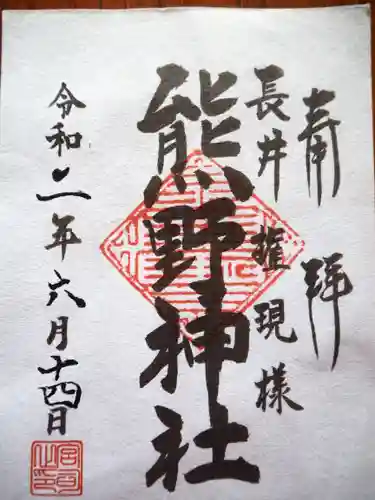 奉拝
長井権現様
熊野神社
令和二年六月十四日